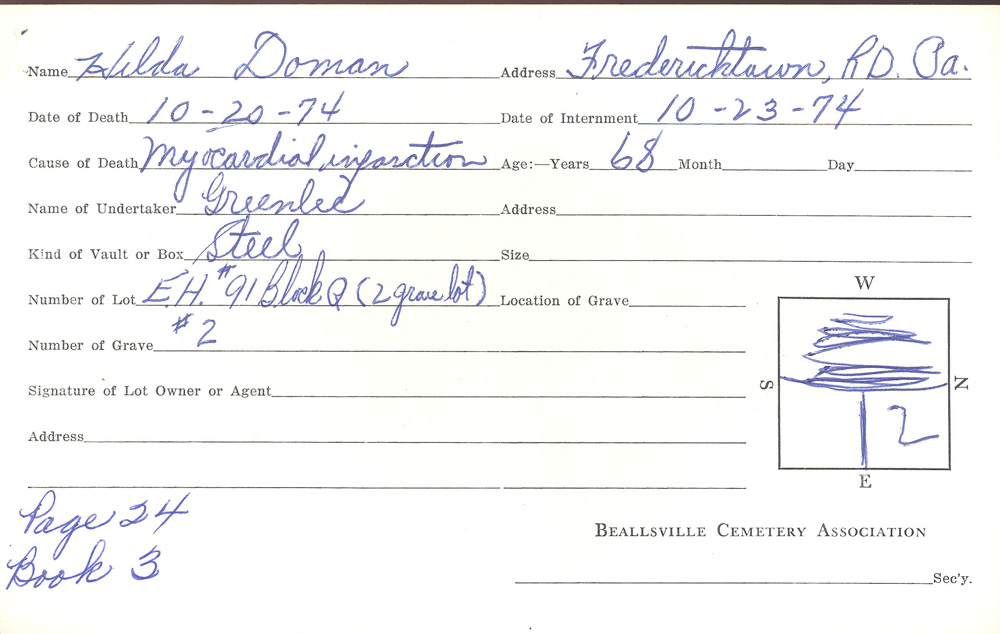 Name Hilda Doman Address Fredericktown, R.D. Pa.
Date of Death 10-20-74 Date of Internment 10-23-74
Cause of Death Myocardial infarction Age:—Years 68 Month Day
Name of Undertaker Greenlee Address
Kind of Vault or Box Steel Size
Number of Lot E.H. #91 Block Q (2 grave lot) Location of Grave
W
Number of Grave #2
Signature of Lot Owner or Agent
S N
2
Address
E
Page 24
Book 3
BEALLSVILLE CEMETERY ASSOCIATION
Sec'y.